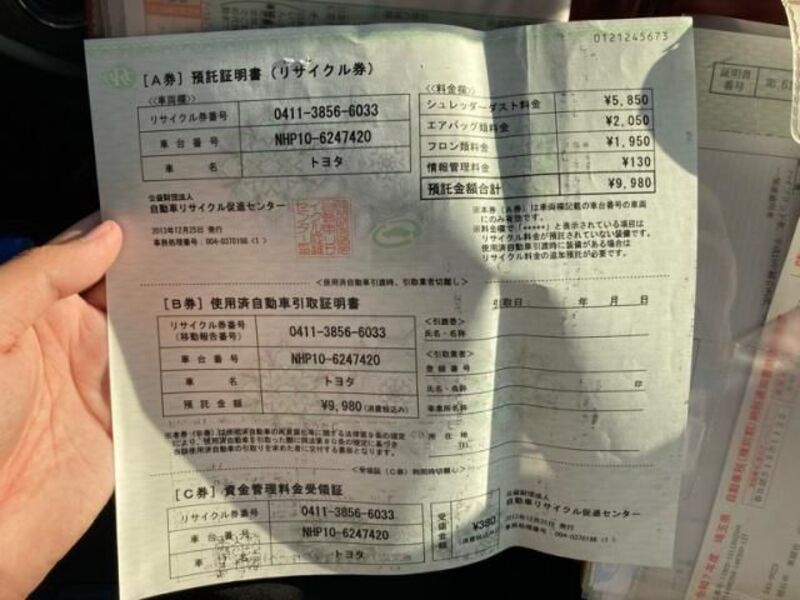 0121245673
[A券] 預託証明書 (リサイクル券)
≪車両欄≫
リサイクル券番号 0411-3856-6033
車台番号 NHP10-6247420
車名 トヨタ
≪料金欄≫
シュレッダーダスト料金 ¥5,850
エアバッグ類料金 ¥2,050
フロン類料金 ¥1,950
情報管理料金 ¥130
預託金額合計 ¥9,980
公益財団法人
自動車リサイクル促進センター
2013年12月25日 発行
※本券(A券)は車両欄記載の車台番号の車両
にのみ有効です。
※料金欄で「*****」と表示されている項目は
リサイクル料金が預託されていない装備です。
使用済自動車引渡時に装備がある場合は
リサイクル料金の追加預託が必要です。
<使用済自動車引渡時、引取業者切離し>
[B券] 使用済自動車引取証明書
引取日: 年 月 日
リサイクル券番号
(移動報告番号) 0411-3856-6033
車台番号 NHP10-6247420
車名 トヨタ
預託金額 ¥9,980 (消費税込み)
<引渡者>
氏名・名称
<引取業者>
登録番号
氏名・名称 印
事業所名称
所在地
<受領証(C券)利用時切離し>
[C券] 資金管理料金受領証
リサイクル券番号 0411-3856-6033
車台番号 NHP10-6247420
車名 トヨタ
受領金額 ¥380
(消費税込み)
公益財団法人
自動車リサイクル促進センター
2013年12月25日 発行
証明書
番号
令和7年度 埼玉県